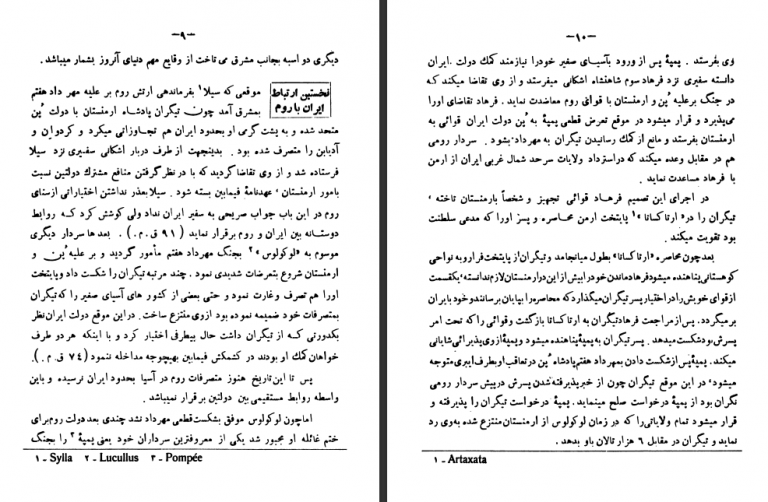 - ۹ -
دیگری دو اسبه بجانب مشرق می تاخت از وقایع مهم دنیای آنروز بشمار میباشد .
نخستین ارتباط
ایران با روم
موقعی که سیلا ۱ بفرماندهی ارتش روم بر علیه مهر داد هفتم
بمشرق آمد چون تیگران پادشاه ارمنستان با دولت پُن
متحد شده و به پشت گرمی او بحدود ایران هم تجاوزاتی میکرد و کردوان و
آدیابن را متصرف شده بود . بدینجهت از طرف دربار اشکانی سفیری نزد سیلا
فرستاده شد و از وی تقاضا گردید که با در نظر گرفتن منافع مشترك دولتین نسبت
بامور ارمنستان ، عهدنامهٔ فیمابین بسته شود . سیلا بعذر نداشتن اختیاراتی از سنای
روم در این باب جواب صریحی به سفیر ایران نداد ولی کوشش کرد که روابط
دوستانه بین ایران و روم برقرار نماید ( ۹۱ ق.م. ) . بعدها سردار دیگری
موسوم به «لوکولوس» ۲ بجنگ مهرداد هفتم مأمور گردید و بر علیه پُن و
ارمنستان شروع بتعرضات شدیدی نمود . چند مرتبه تیگران را شکست داد و پایتخت
اورا هم تصرف و غارت نمود و حتی بعضی از کشور های آسیای صغیر را که تیگران
بمتصرفات خود ضمیمه نموده بود ازوی منتزع ساخت . در این موقع دولت ایران نظر
بکدورتی که از تیگران داشت حال بیطرفی اختیار کرد و با اینکه هر دو طرف
خواهان کمك او بودند در کشمکش فیمابین بهیچوجه مداخله ننمود ( ۷۴ ق.م. ).
پس تا این تاریخ هنوز متصرفات روم در آسیا بحدود ایران نرسیده و باین
واسطه روابط مستقیمی بین دولتین برقرار نمیباشد .
اما چون لوکولوس موفق بشکست قطعی مهرداد نشد چندی بعد دولت روم برای
ختم غائله او مجبور شد یکی از معروفترین سرداران خود یعنی پمپهٔ ۳ را بجنگ
۱ - Sylla ۲ - Lucullus ۳ - Pompée
- ۱۰ -
وی بفرستد . پمپهٔ پس از ورود بآسیای صغیر خودرا نیازمند کمك دولت ایران
دانسته سفیری نزد فرهاد سوم شاهنشاه اشکانی میفرستد و از وی تقاضا میکند که
در جنگ برعلیه پُن و ارمنستان با قوای روم معاضدت نماید . فرهاد تقاضای اورا
می‌پذیرد و قرار میشود در موقع تعرض قطعی پمپهٔ به پُن دولت ایران قوائی به
ارمنستان بفرستد و مانع از کمك رسانیدن تیگران به مهرداد بشود . سردار رومی
هم در مقابل وعده میکند که در استرداد ولایات سرحد شمال غربی ایران از ارمن
با فرهاد مساعدت نماید .
در اجرای این تصمیم فرهاد قوائی تجهیز و شخصاً بارمنستان تاخته ،
تیگران را در« ارتاکساتا » ۱ پایتخت ارمن محاصره و پسر اورا که مدعی سلطنت
بود تقویت میکند .
بعد چون محاصره «ارتاکساتا» بطول میانجامد و تیگران از پایتخت فرار و به نواحی
کوهستانی پناهنده میشود فرهاد ماندن خودرا بیش از این در ارمنستان لازم ندانسته، یکقسمت
از قوای خویش را در اختیار پسر تیگران میگذارد که محاصره را بپایان برساند و خود بایران
بر میگردد. پس از مراجعت فرهاد تیگران به ارتاکساتا بازگشت و قوائی را که تحت امر
پسرش بود شکست میدهد. پسر تیگران به پمپهٔ پناهنده میشود و پمپهٔ ازوی پذیرائی شایانی
میکند. پمپهٔ پس از شکست دادن بمهرداد هفتم پادشاه پُن در تعاقب او بطرف ایبری متوجه
میشود ، در این موقع تیگران چون از خبر پذیرفته شدن پسرش در پیش سردار رومی
نگران بود از پمپهٔ درخواست صلح مینماید. پمپهٔ درخواست تیگران را پذیرفته و
قرار میشود تمام ولایاتی را که در زمان لوکولوس از ارمنستان منتزع شده به وی رد
نماید و تیگران در مقابل ۶ هزار تالان باو بدهد .
۱ - Artaxata